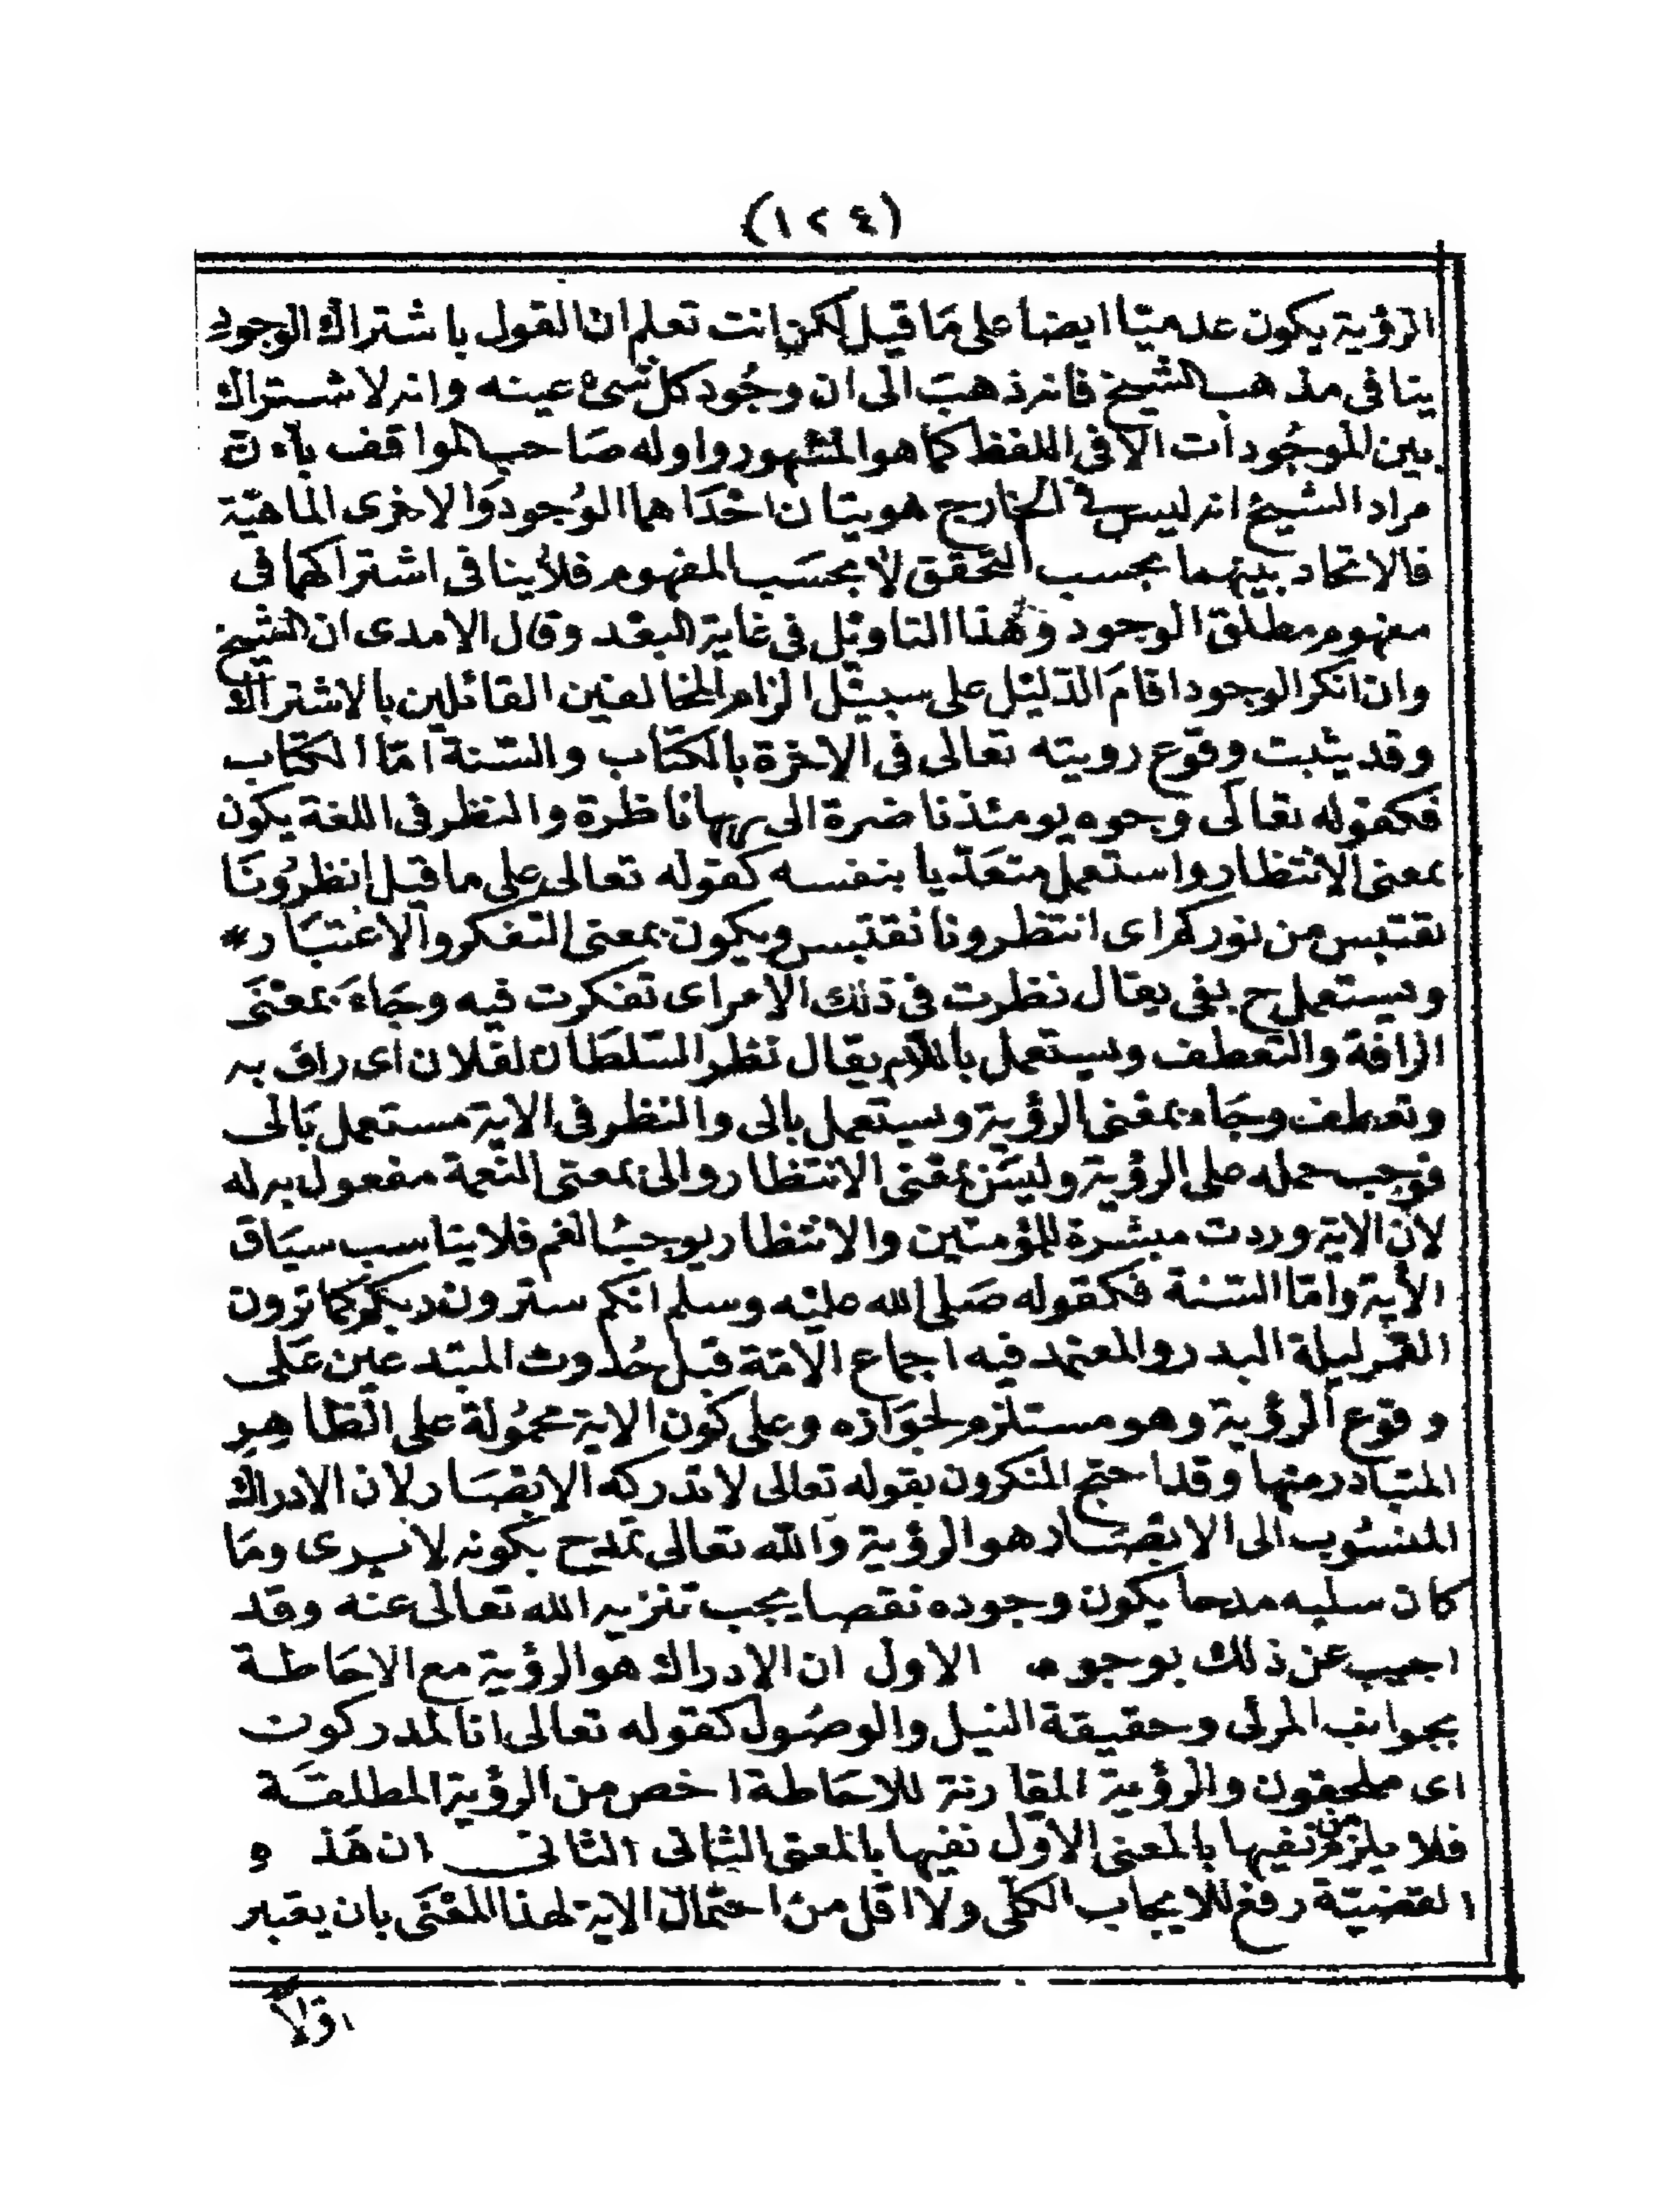 (١٢٤)
الرؤية يكون عدميا ايضا على مَا قيل لكن انت تعلم ان القول باشتراك الوجود
ينافى مذهب الشيخ فانه ذهبَ الى ان وجُود كل شىء عينه وانه لا اشتراك
بين الموجُودات الا فى اللفظ كما هو المشهور واوله صَاحب المواقف بان
مراد الشيخ انه ليس فى الخارج هويتان احدَاهما الوُجود وَالاخرى الماهيّة
فالاتحاد بينهما بحسب التحقق لا بحسَب المفهوم فلا ينافى اشتراكهما فى
مفهوم مطلق الوجود وَهذا التاويل فى غاية البعد وقال الامدى ان الشيخ
وان انكر الوجود اقامَ الدّليل على سبيل الزام المخالفين القائلين بالاشتراك
وقد يثبت وقوع رويته تعالى فى الاخرة بالكتاب والسّنة امّا الكتاب
فكقوله تعالى وجوه يومئذ ناضرة الى ربها ناظرة والنظر فى اللغة يكون
بمعنى الانتظار واستعمل متعَدّيا بنفسه كقوله تعالى على ما قيل انظرُونَا
نقتبس من نوركم اى انتظرونا نقتبس ويكون بمعنى التفكر والاعتبَار *
ويستعمل ح بفى يقال نظرت فى ذلك الامر اى تفكرت فيه وجَاءَ بمعنَى
الرافة والتعطف ويستعمل باللام يقال نظر السّلطان لفلان اى راف به
وتعطف وجَاء بمعنى الرؤية ويستعمل بالى والنظر فى الاية مستعمل بَالى
فوجب حمله على الرؤية وليسَ بمعنى الانتظار والى بمعنى النّعمة مفعول به له
لانّ الاية وردت مبشرة للمؤمنين والانتظار يوجبُ الغم فلا يناسب سيَاق
الأية وامّا السّنة فكقوله صَلى الله عليْه وسلم انكم سترون ربكم كما ترون
القمر ليلة البدر والمعتمد فيه اجماع الامّة قبل حُدوث المبتدعين عَلى
وقوع الرؤية وهو مستلزم لجوَازه وعلى كون الاية محمُولة على الظاهر
المتبادر منها وقد احتج المنكرون بقوله تعالى لا تدركه الابصَار لان الادراك
المنسُوب الى الابصَار هو الرؤية وَالله تعالى تمدح بكونه لا يرى ومَا
كان سلبه مدحا يكون وجوده نقصا يجب تنزيه الله تعالى عنه وقد
اجيب عن ذلك بوجوه الاول ان الادراك هو الرؤية مع الاحَاطة
بجوانب المرئى وحقيقة النيل والوصُول كقوله تعالى انا لمدركون
اى ملحقون والرؤية المقارنة للاحَاطة اخص من الرؤية المطلقَة
فلا يلزم من نفيها بالمعنى الاوّل نفيها بالمعنى الثانى الثانى ان هَذه
القضيّة رفع للايجاب الكلى ولا اقل منْ احتمال الاية لهذا المعْنَى بان يعتبر
اوّلاً